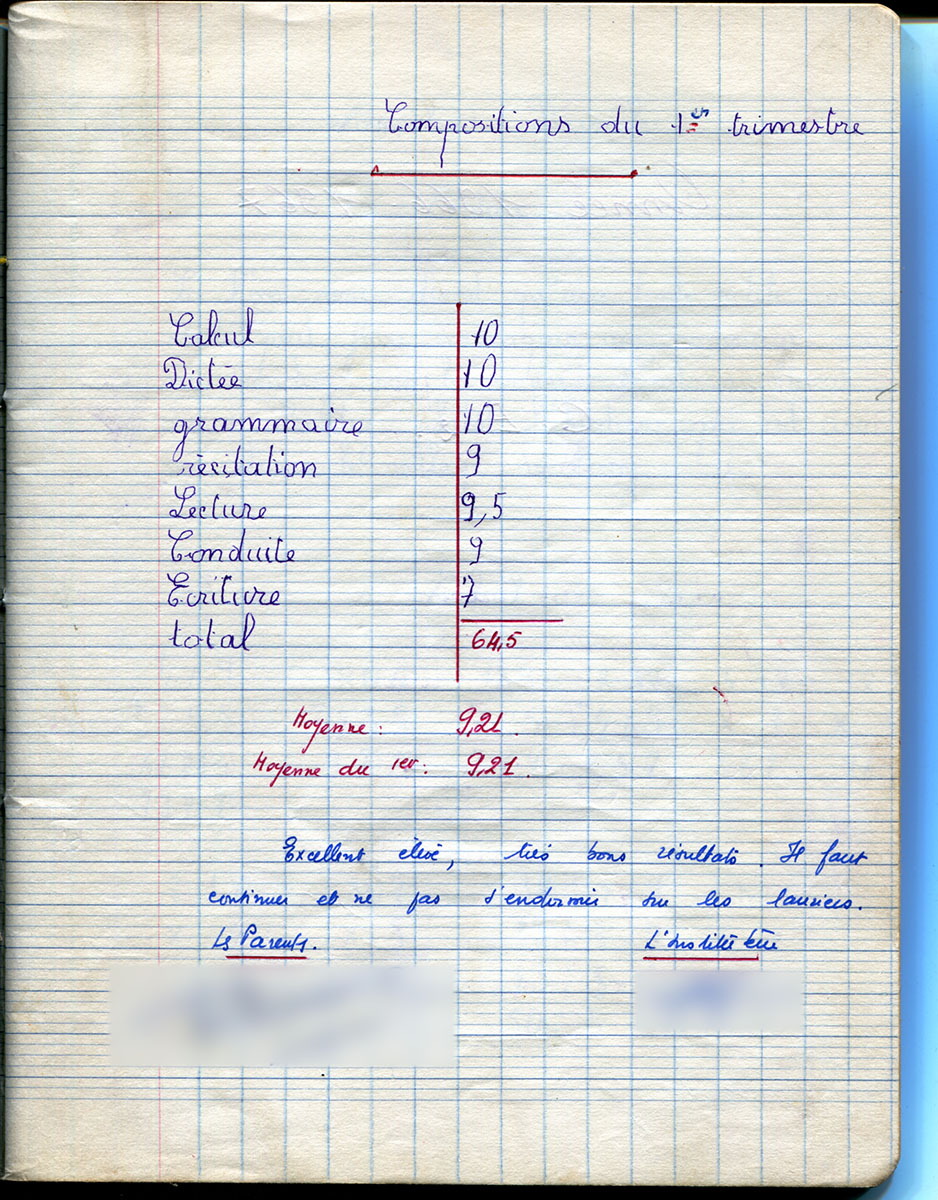 Compositions du 1er trimestre
Calcul 10
Dictée 10
grammaire 10
récitation 9
Lecture 9,5
Conduite 9
Ecriture 7
total 64,5
Moyenne : 9,21.
Moyenne du 1er : 9,21.
Excellent élève, très bons résultats. Il faut
continuer et ne pas s'endormir sur les lauriers.
Les Parents. L'Instituteur